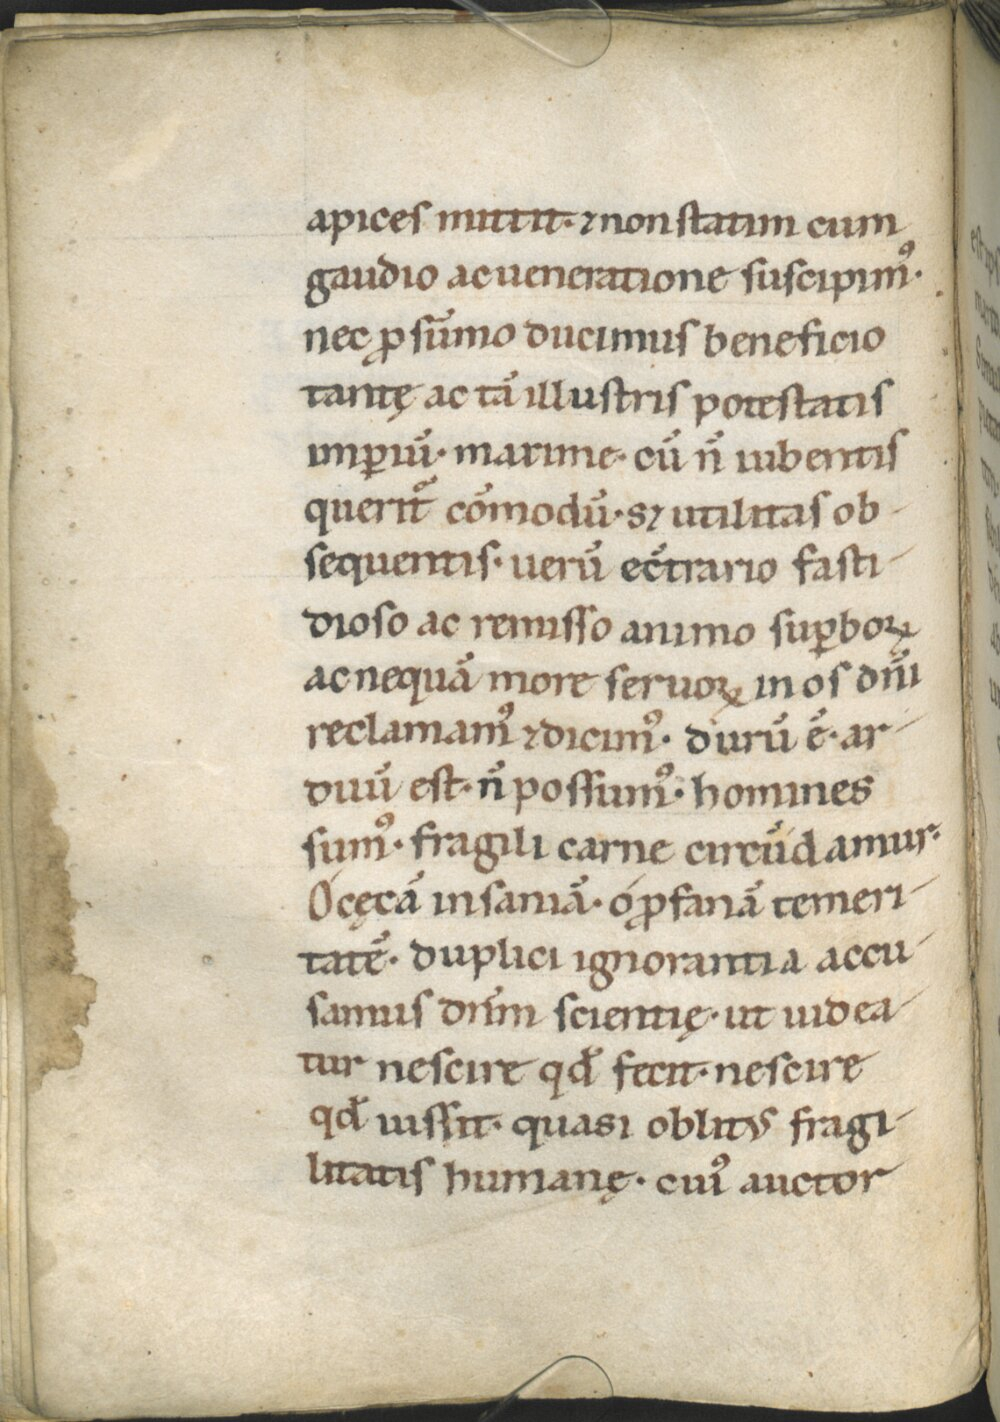 apices mittit· ⁊non statim cum
gaudio ac ueneratione suscipimꝰ·
nec ꝓ sūmo ducimus beneficio
tantę ac tā illustris potestatis
imꝑiū· maxime· cū n̄ iubentis
querit᷑ cōmodū· sꝫ utilitas ob
sequentis· uerū ec̄trario fasti-
dioso ac remisso animo suꝑboꝝ
ac nequā more seruoꝝ in os dn̄i
reclamamꝰ ⁊dicimꝰ· durū ē· ar-
duū est· n̄ possumꝰ· homines
sumꝰ· fragili carne circūdamur·
O cęcā insaniā· o ꝓfanā temeri-
tatē· duplici ignorantia accu-
samus dn̄m scientię· ut uidea-
tur nescire qđ fecit· nescire
qđ iussit· quasi oblitus fragi-
litatis humanę· cuiꝰ auctor